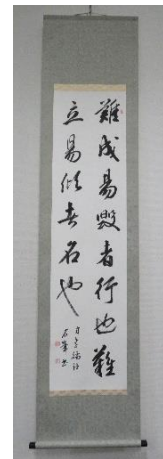 難成易毀者行也難
立易傾者名也